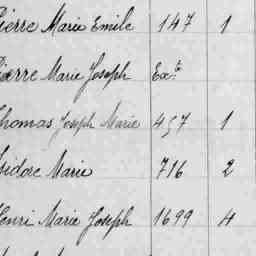 Pierre Marie Emile 147 1
Pierre Marie Joseph Ext
Thomas Joseph Marie 457 1
Isidore Marie 716 2
Henri Marie Joseph 1699 4